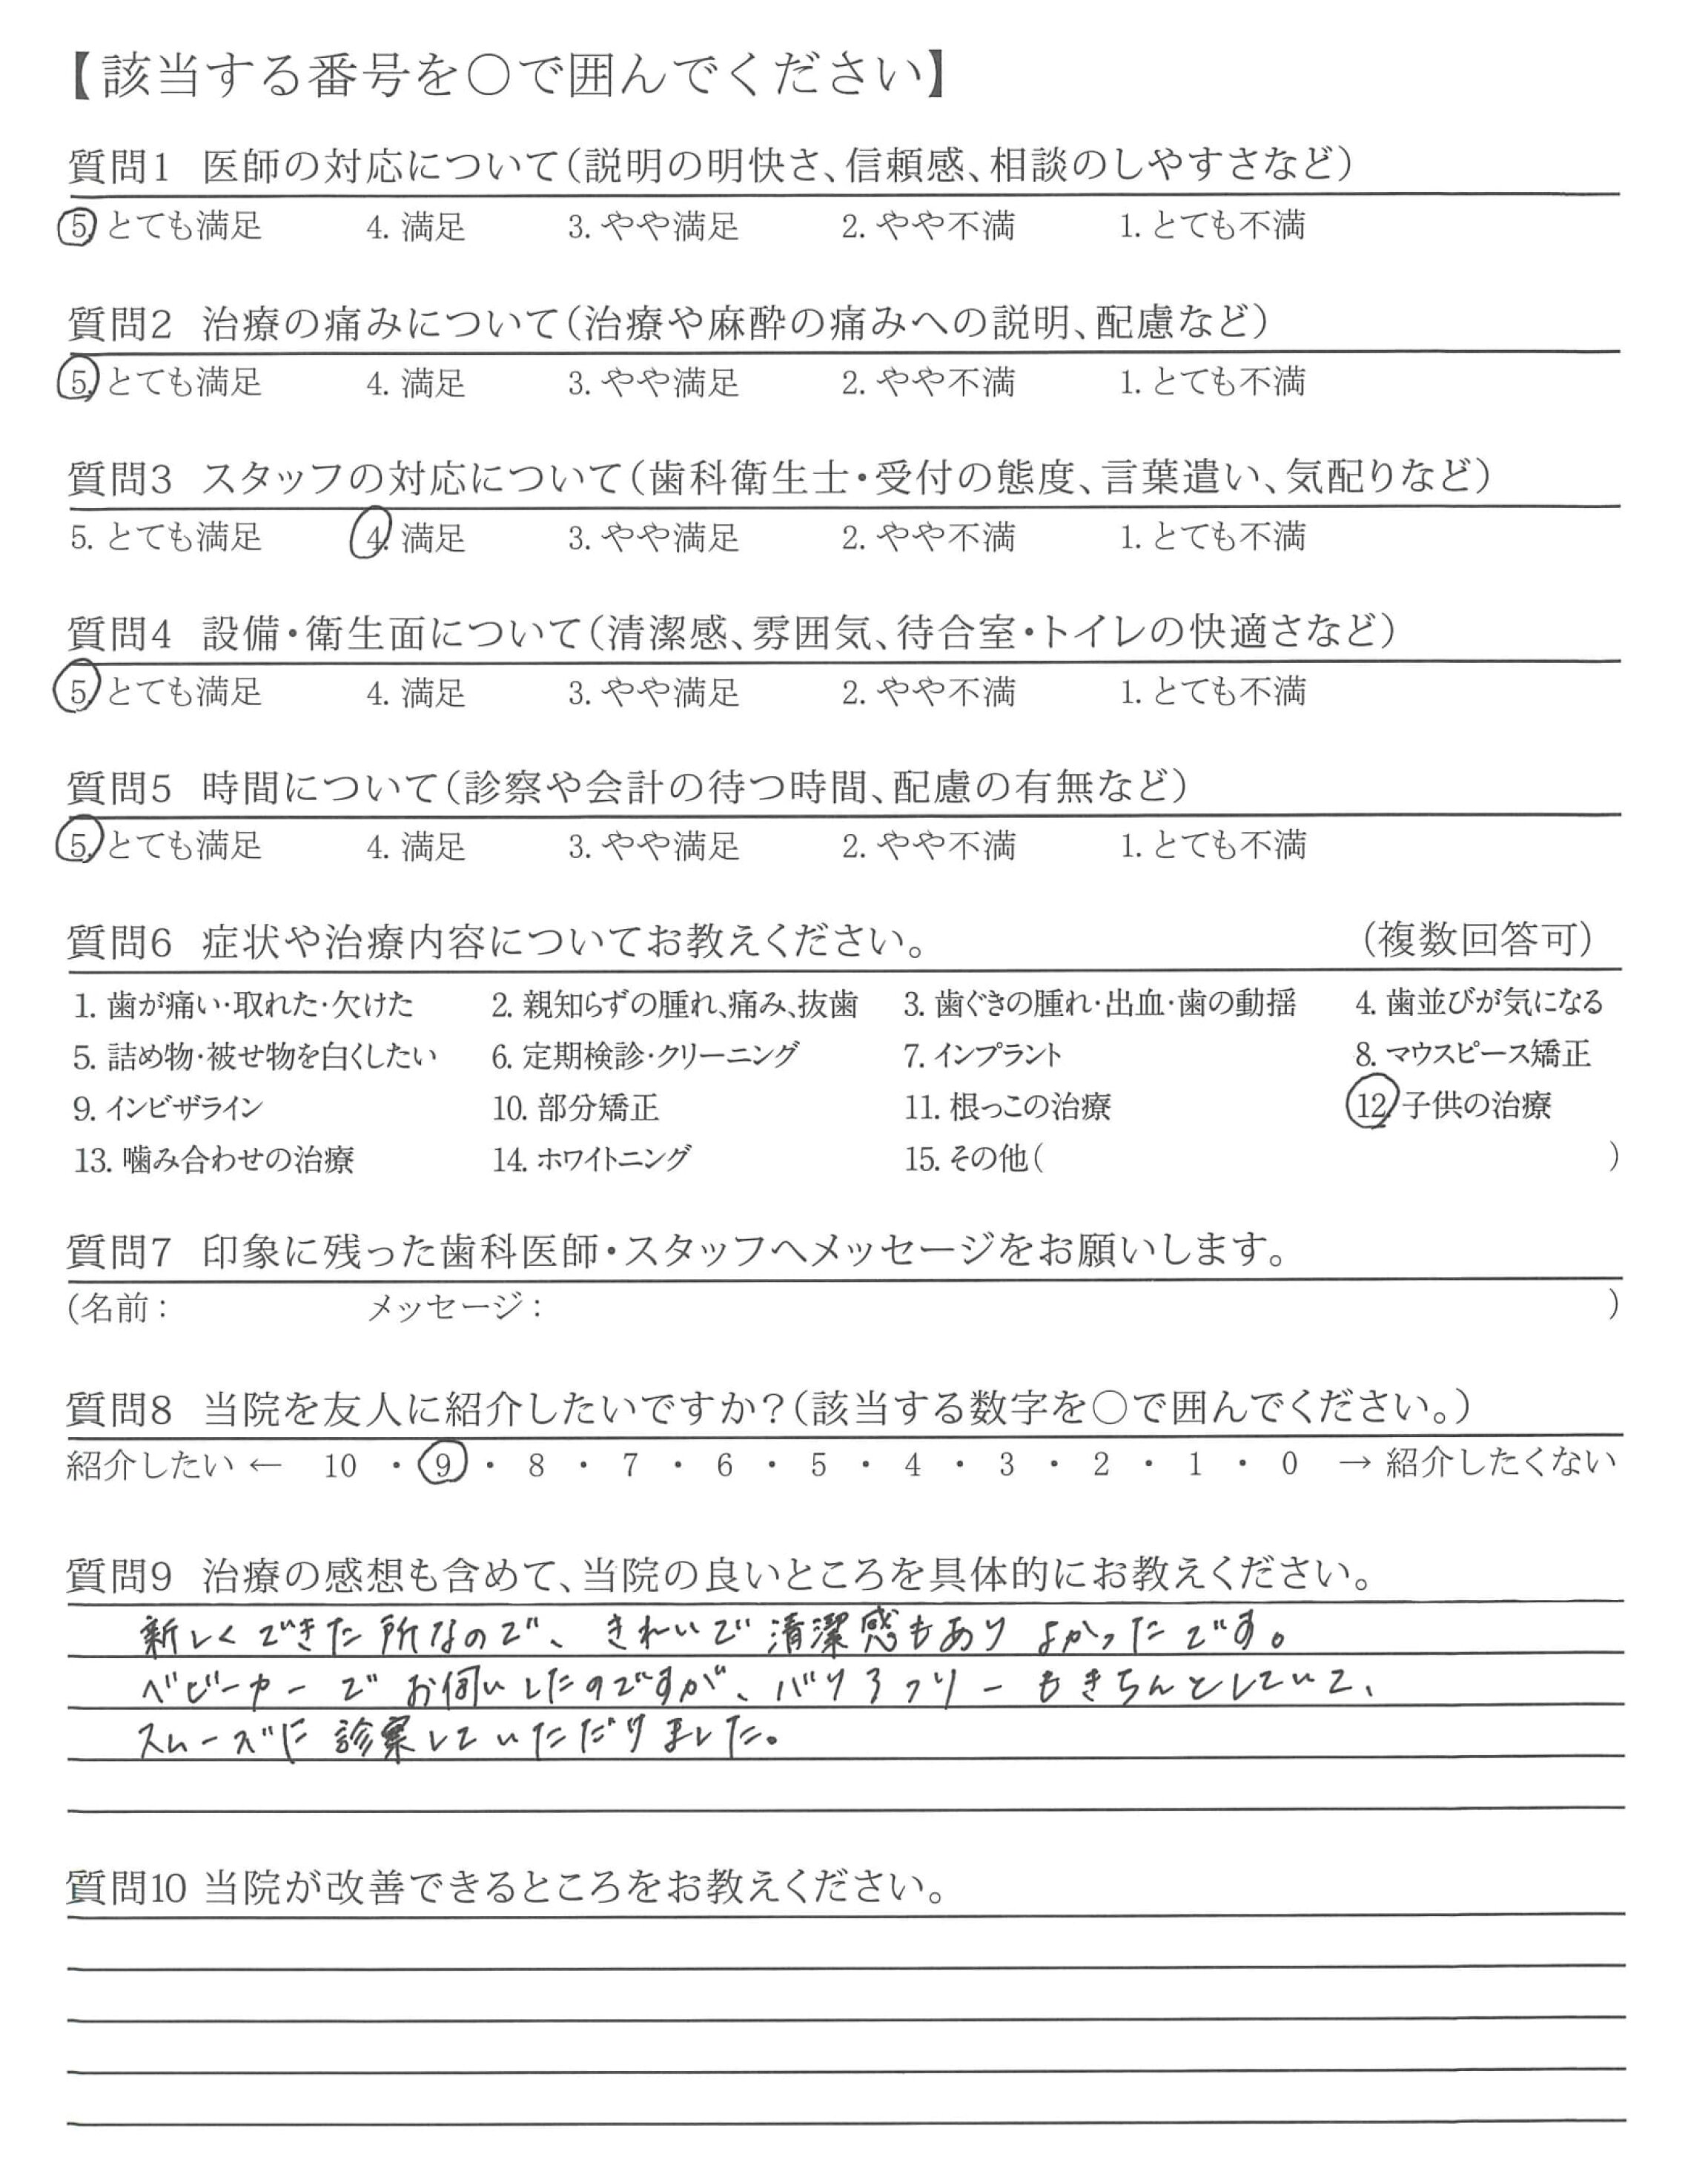 【該当する番号を○で囲んでください】
質問1 医師の対応について(説明の明快さ、信頼感、相談のしやすさなど)
5. とても満足 4. 満足 3. やや満足 2. やや不満 1. とても不満
質問2 治療の痛みについて(治療や麻酔の痛みへの説明、配慮など)
5. とても満足 4. 満足 3. やや満足 2. やや不満 1. とても不満
質問3 スタッフの対応について(歯科衛生士・受付の態度、言葉遣い、気配りなど)
5. とても満足 4. 満足 3. やや満足 2. やや不満 1. とても不満
質問4 設備・衛生面について(清潔感、雰囲気、待合室・トイレの快適さなど)
5. とても満足 4. 満足 3. やや満足 2. やや不満 1. とても不満
質問5 時間について(診察や会計の待つ時間、配慮の有無など)
5. とても満足 4. 満足 3. やや満足 2. やや不満 1. とても不満
質問6 症状や治療内容についてお教えください。 (複数回答可)
1. 歯が痛い・取れた・欠けた 2. 親知らずの腫れ、痛み、抜歯 3. 歯ぐきの腫れ・出血・歯の動揺 4. 歯並びが気になる
5. 詰め物・被せ物を白くしたい 6. 定期検診・クリーニング 7. インプラント 8. マウスピース矯正
9. インビザライン 10. 部分矯正 11. 根っこの治療 12. 子供の治療
13. 噛み合わせの治療 14. ホワイトニング 15. その他( )
質問7 印象に残った歯科医師・スタッフへメッセージをお願いします。
(名前: メッセージ: )
質問8 当院を友人に紹介したいですか?(該当する数字を○で囲んでください。)
紹介したい ← 10 ・ 9 ・ 8 ・ 7 ・ 6 ・ 5 ・ 4 ・ 3 ・ 2 ・ 1 ・ 0 → 紹介したくない
質問9 治療の感想も含めて、当院の良いところを具体的にお教えください。
新しくできた所なので、きれいで清潔感もありよかったです。
ベビーカーでお伺いしたのですが、バリアフリーもきちんとしていて、
スムーズに診察していただけました。
質問10 当院が改善できるところをお教えください。